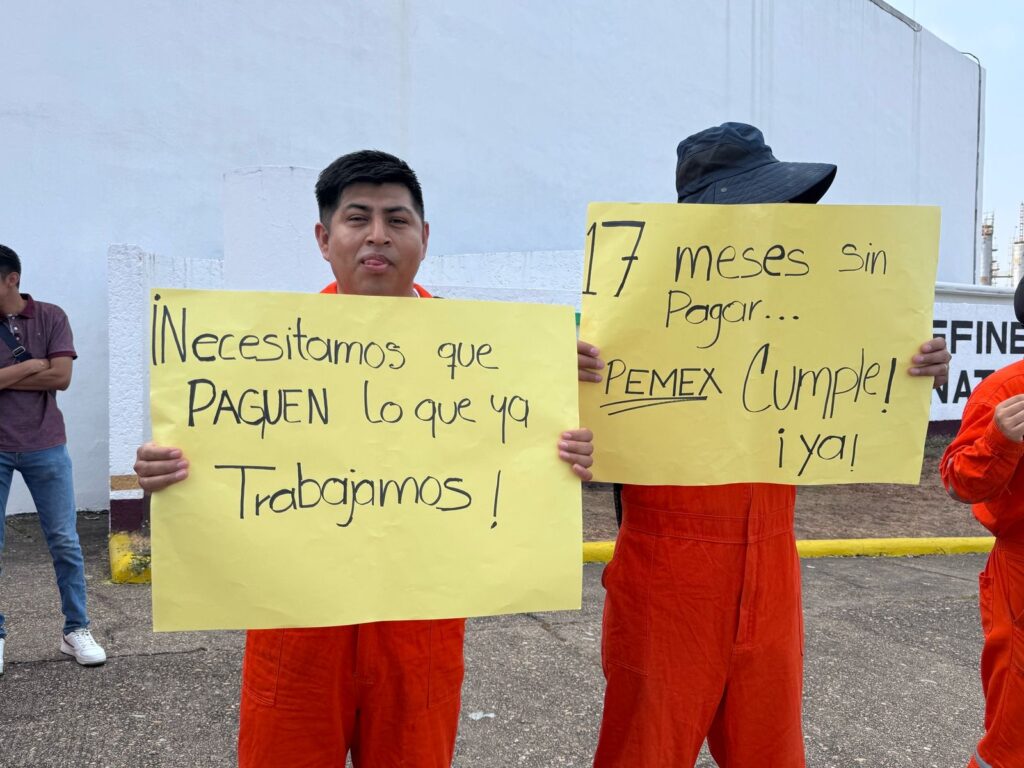 ¡Necesitamos que
PAGUEN lo que ya
Trabajamos!
17 meses sin
Pagar...
PEMEX Cumple!
¡ya!